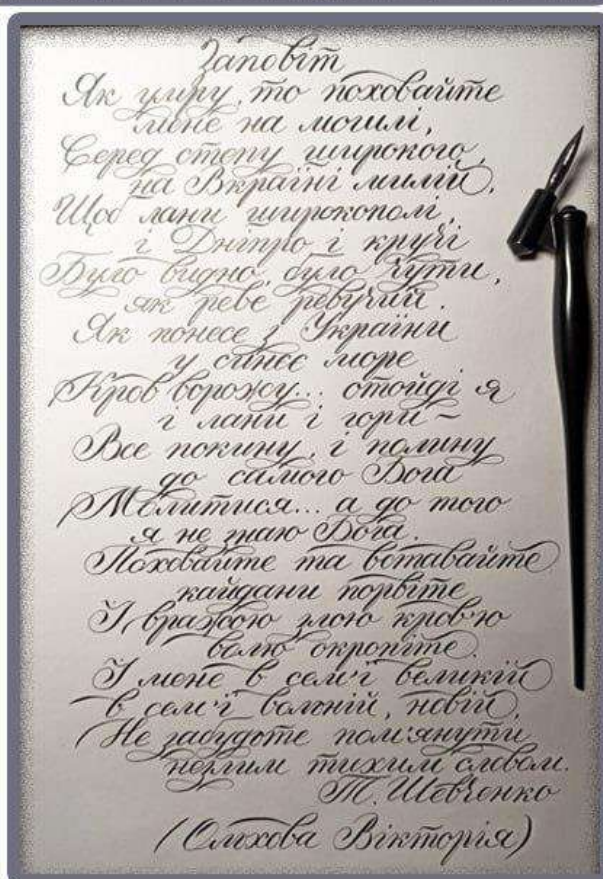 Заповіт
Як умру, то поховайте
мене на могилі,
Серед степу широкого,
на Вкраїні милій,
Щоб лани широкополі,
і Дніпро і кручі
Було видно, було чути,
як реве ревучий.
Як понесе з України
у синєє море
Кров ворожу... отойді я
і лани і гори –
Все покину, і полину
до самого Бога
Молитися... а до того
я не знаю Бога.
Поховайте та вставайте
кайдани порвіте
І вражою злою кров'ю
волю окропіте.
І мене в сем'ї великій
в сем'ї вольній, новій,
Не забудьте пом'янути
незлим тихим словом.
Т. Шевченко
(Ольхова Вікторія)